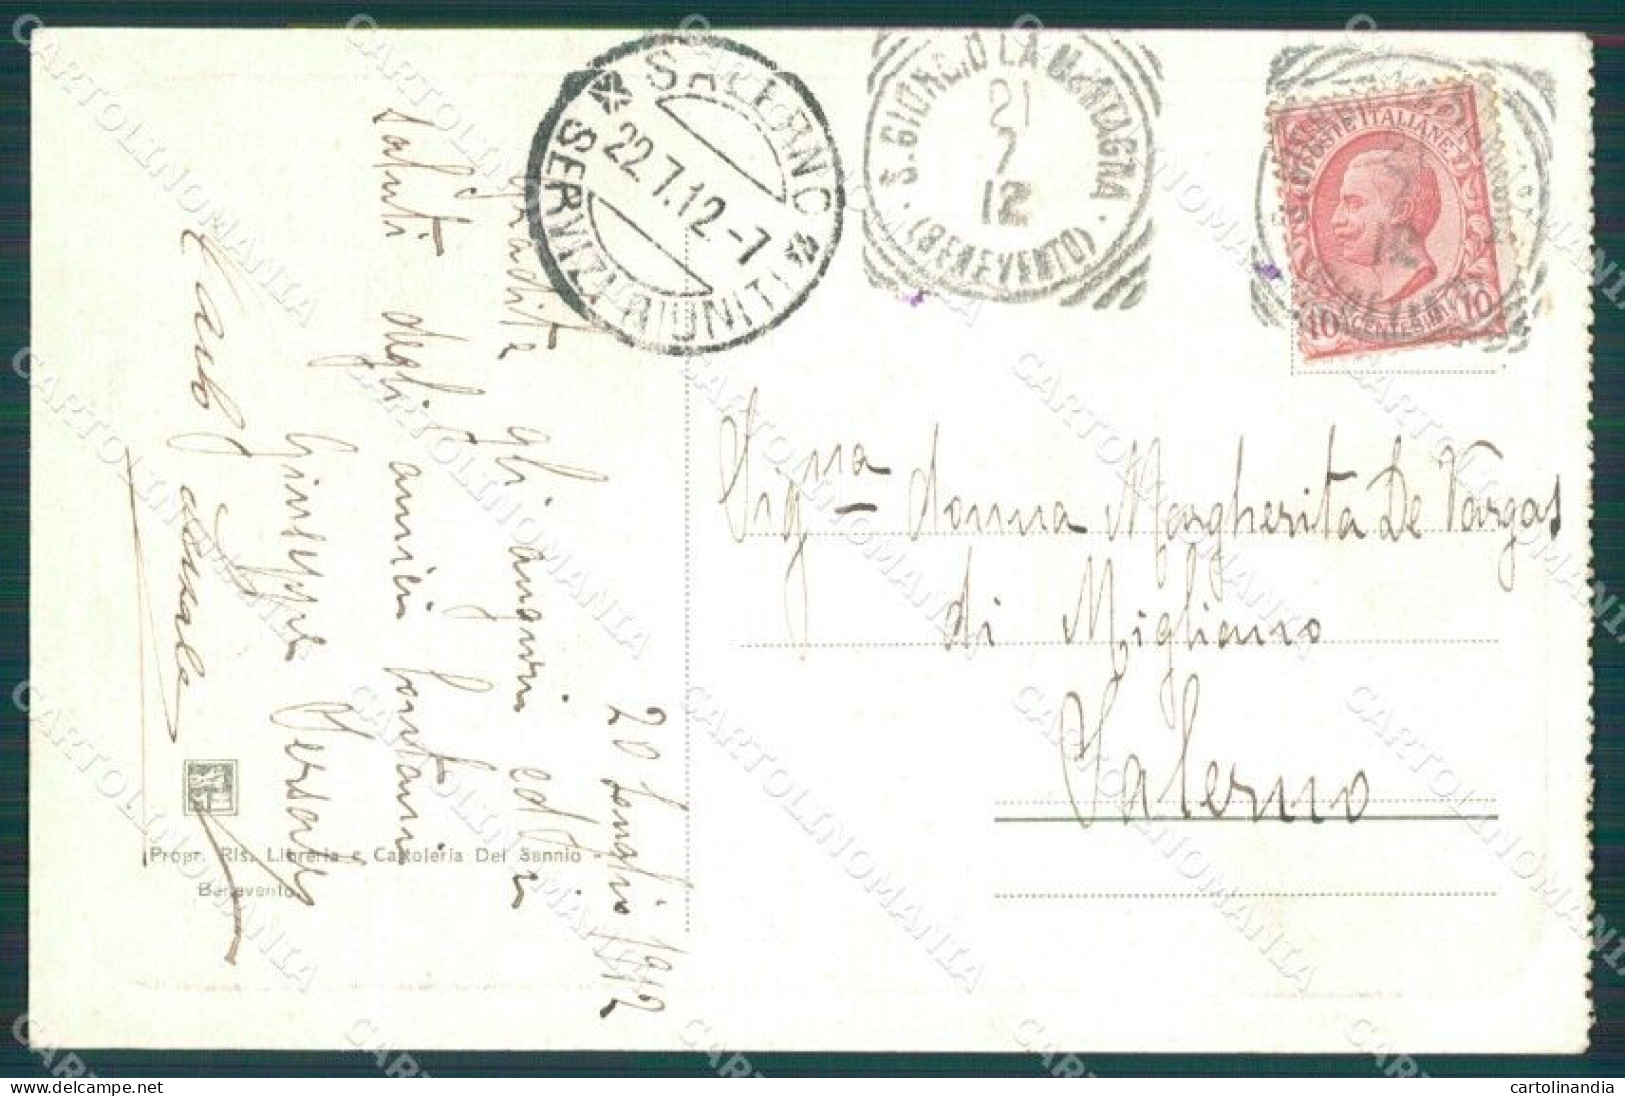 SALERNO
22.7.12-7
SERVIZI RIUNITI
S. GIORGIO LA MONTAGNA
21
7
12
(BENEVENTO)
POSTE ITALIANE
10 CENTESIMI 10
Sig.na donna Margherita De Vargas
di Migliano
Salerno
20 luglio 1912
Gradite gli auguri ed i
saluti degli amici lontani
Giuseppe
Carlo
Propr. Ris. Libreria e Cartoleria Del Sannio -
Benevento.
CARTOLINOMANIA
cartolinandia